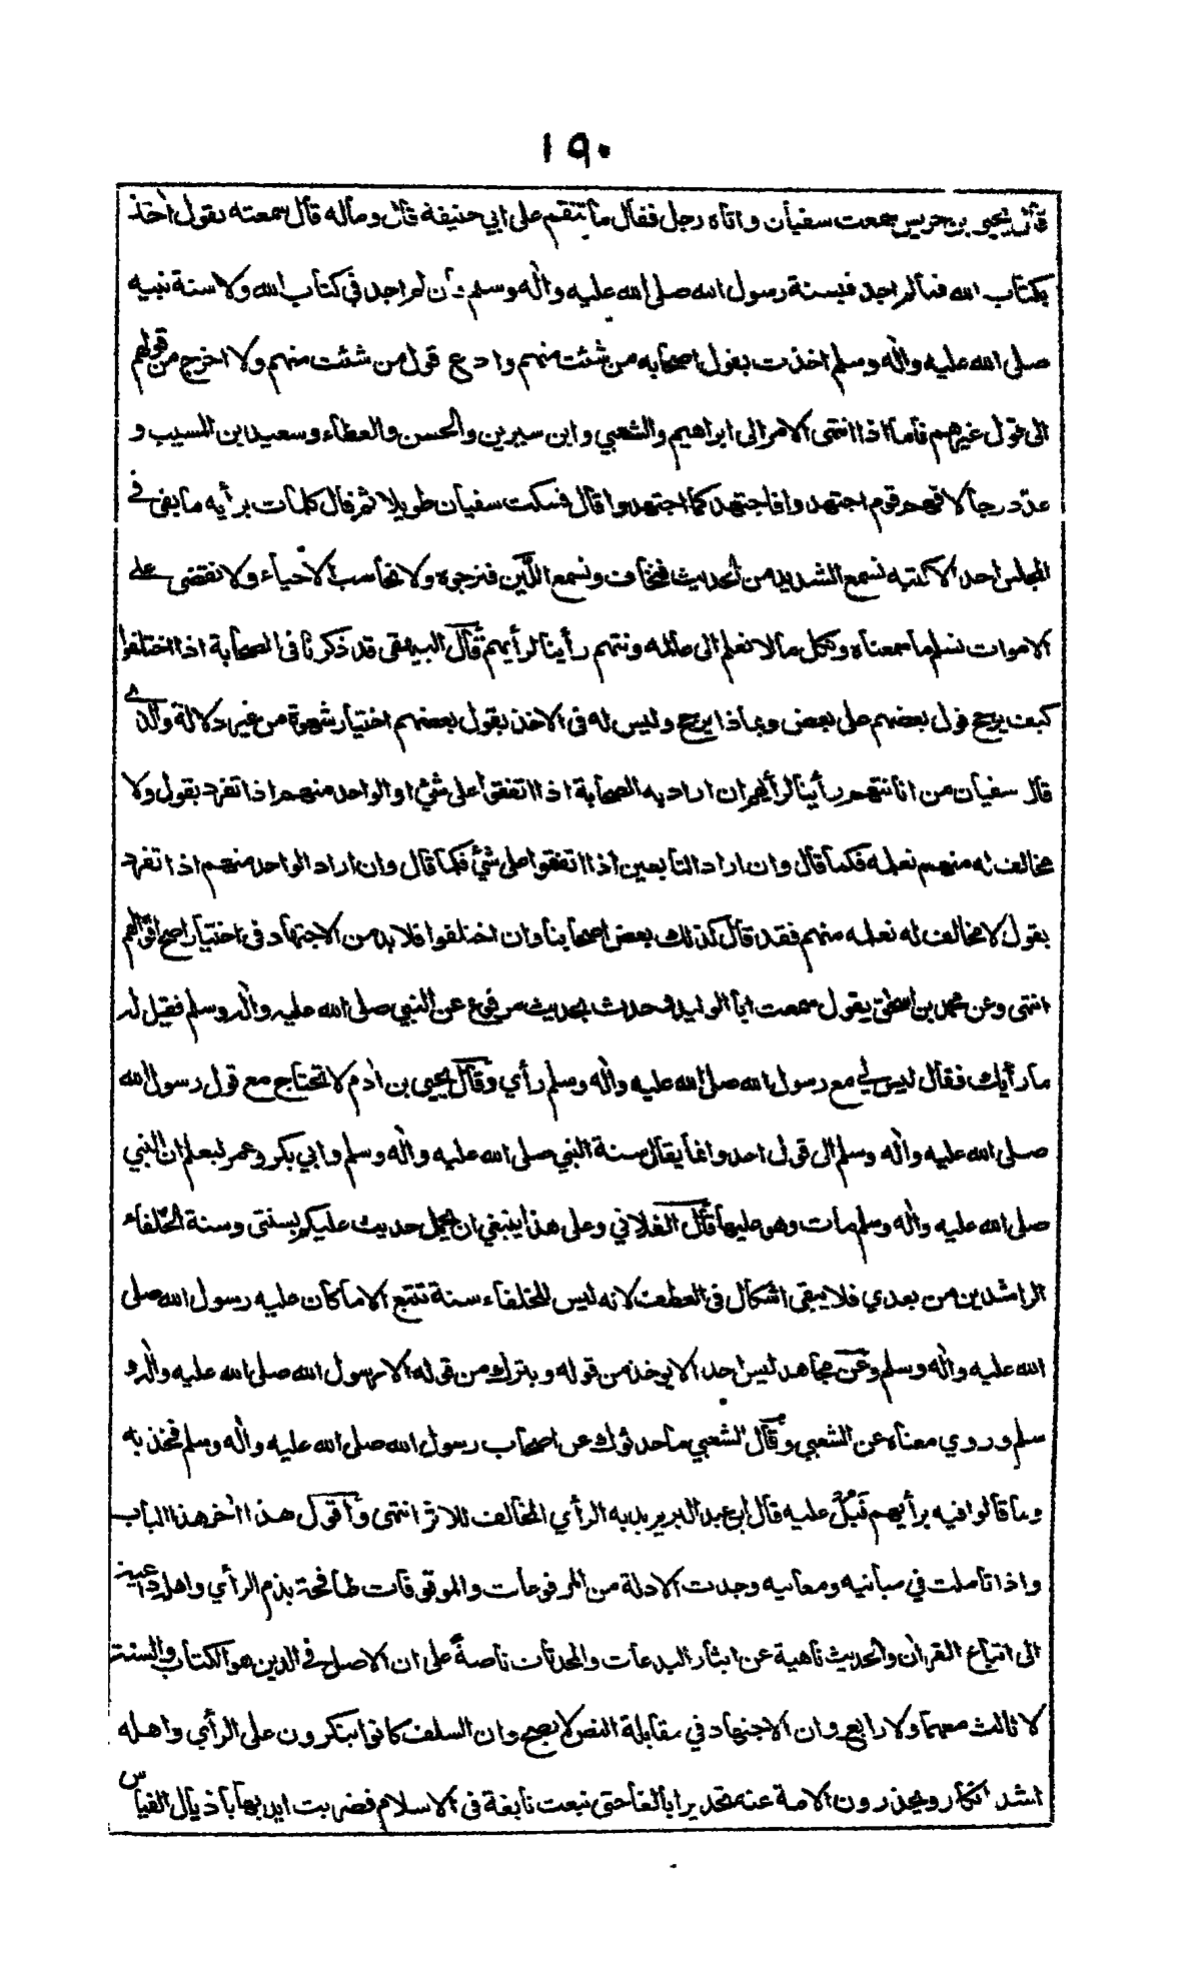 ١٩٠
قال يحيى بن حريس سمعت سفيان واتاه رجل فقال ما تنقم على ابي حنيفة قال وماله قال سمعته يقول اخذ
بكتاب الله فما لم اجد فبسنة رسول الله صلى الله عليه واٰله وسلم فان لم اجد في كتاب الله ولا سنة نبيه
صلى الله عليه واٰله وسلم اخذت بقول اصحابه من شئت منهم وادع قول من شئت منهم ولا اخرج من قولهم
الى قول غيرهم فاما اذا انتهى الامر الى ابراهيم والشعبي وابن سيرين والحسن والعطاء وسعيد ابن المسيب و
عدّد رجالا فهم قوم اجتهدوا فاجتهد كما اجتهدوا قال فسكت سفيان طويلا ثم قال كلمات برأيه ما بقي في
المجلس احد الا كتبه نسمع الشديد من الحديث فنخاف ونسمع اللّين فنرجوه ولا نحاسب الاحياء ولا نقضى على
الاموات نسلم ما سمعناه ونكل ما لا نعلم الى عالمه ونتهم رأينا لرأيهم قال البيهقي قد ذكرنا في الصحابة اذا اختلفوا
كيف يرجح قول بعضهم على بعض وبماذا يرجح وليس له في الاخذ بقول بعضهم اختيار شهوة من غير دلالة والذي
قال سفيان من انا نتهم رأينا لرأيهم ان اراد به الصحابة اذا اتفقوا على شئ او الواحد منهم اذا تفرد بقول ولا
مخالف له منهم نعلمه فكما قال وان اراد التابعين اذا اتفقوا على شئ فكما قال وان اراد الواحد منهم اذا تفرد
بقول لا مخالف له نعلمه منهم فقد قال كذلك بعض اصحابنا وان اختلفوا فلا بد من الاجتهاد في اختيار اصح اقوالهم
انتهى وعن محمد بن اسحٰق يقول سمعت ابا الوليد حدث بحديث مرفوع عن النبي صلى الله عليه واٰله وسلم فقيل له
ما رأيك فقال ليس لي مع رسول الله صلى الله عليه واٰله وسلم رأي وقال يحيى بن اٰدم لا تحتاج مع قول رسول الله
صلى الله عليه واٰله وسلم الى قول احد وانما يقال سنة النبي صلى الله عليه واٰله وسلم وابي بكر وعمر ليعلم ان النبي
صلى الله عليه واٰله وسلم مات وهو عليها قال الفلاني وعلى هذا ينبغي ان يحمل حديث عليكم بسنتى وسنة الخلفاء
الراشدين من بعدي فلا يبقى اشكال في العطف لانه ليس للخلفاء سنة تتبع الا ما كان عليه رسول الله صلى
الله عليه واٰله وسلم وعن مجاهد ليس احد الا يوخذ من قوله ويترك من قوله الا رسول الله صلى الله عليه واٰله و
سلم وروي معناه عن الشعبي وقال الشعبي ما حدثوك عن اصحاب رسول الله صلى الله عليه واٰله وسلم فخذ به
وما قالوا فيه برأيهم فبُل عليه قال ابو عبد البر يريد به الرأي المخالف للاثر انتهى واقول هذا اٰخر هذا الباب
واذا تاملت في مبانيه ومعانيه وجدت الادلة من المرفوعات والموقوفات طافحة بذم الرأي واهله داعية
الى اتباع القراٰن والحديث ناهية عن ايثار البدعات والمحدثات ناصةً على ان الاصل في الدين هو الكتاب والسنة
لا ثالث معهما ولا رابع وان الاجتهاد في مقابلة النص لا يصح وان السلف كانوا ينكرون على الرأي واهله
اشد انكار ويحذرون الامة عنه تحذيرا بالغا حتى نبعت نابغة في الاسلام فضربت ايديها باذيال القياس